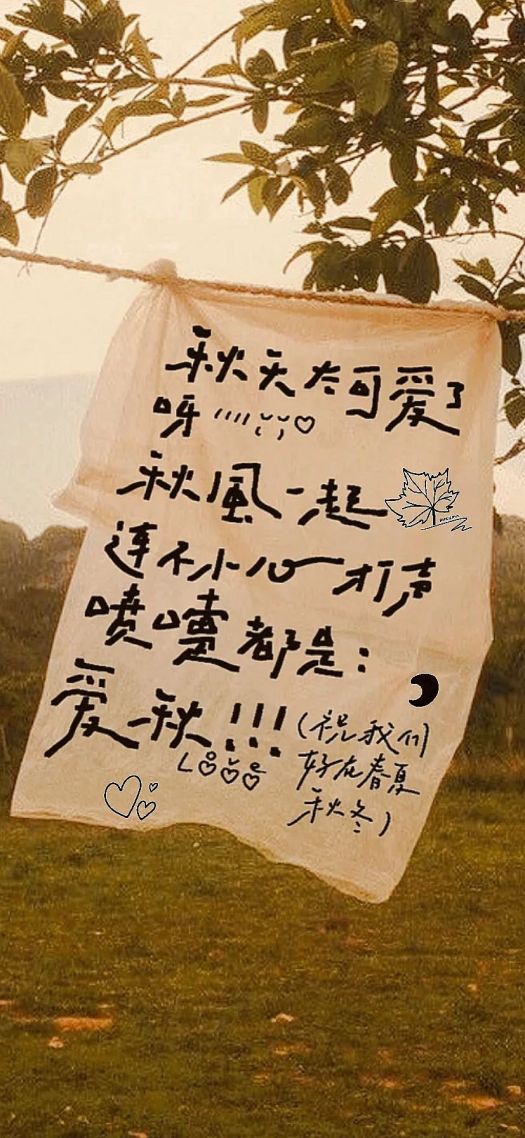 秋天太可爱了
呀
秋風一起
连不小心打声
喷嚏都是:
爱秋!!!
(祝我们
好在春夏
秋冬)
Love